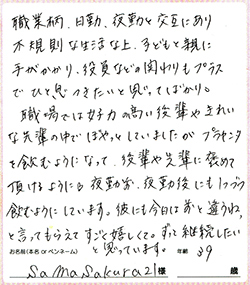 職業柄、日勤、夜勤と交互にあり
不規則な生活な上、子どもと親に
手がかかり、役員などの関わりもプラス
でひと息つきたいと思ってばかり。
職場では女子力の高い後輩やきれい
な先輩の中でぼやっとしていましたがプラセンタ
を飲むようになって、後輩や先輩に褒めて
頂けるように!夜勤前、夜勤後にも1つづつ
飲むようにしています。彼にも今日は前と違うね、
と言ってもらえてすごく嬉しくて。ずっと継続したい
と思っています。
お名前(本名 or ペンネーム) 年齢 39
samasakura21 様 歳